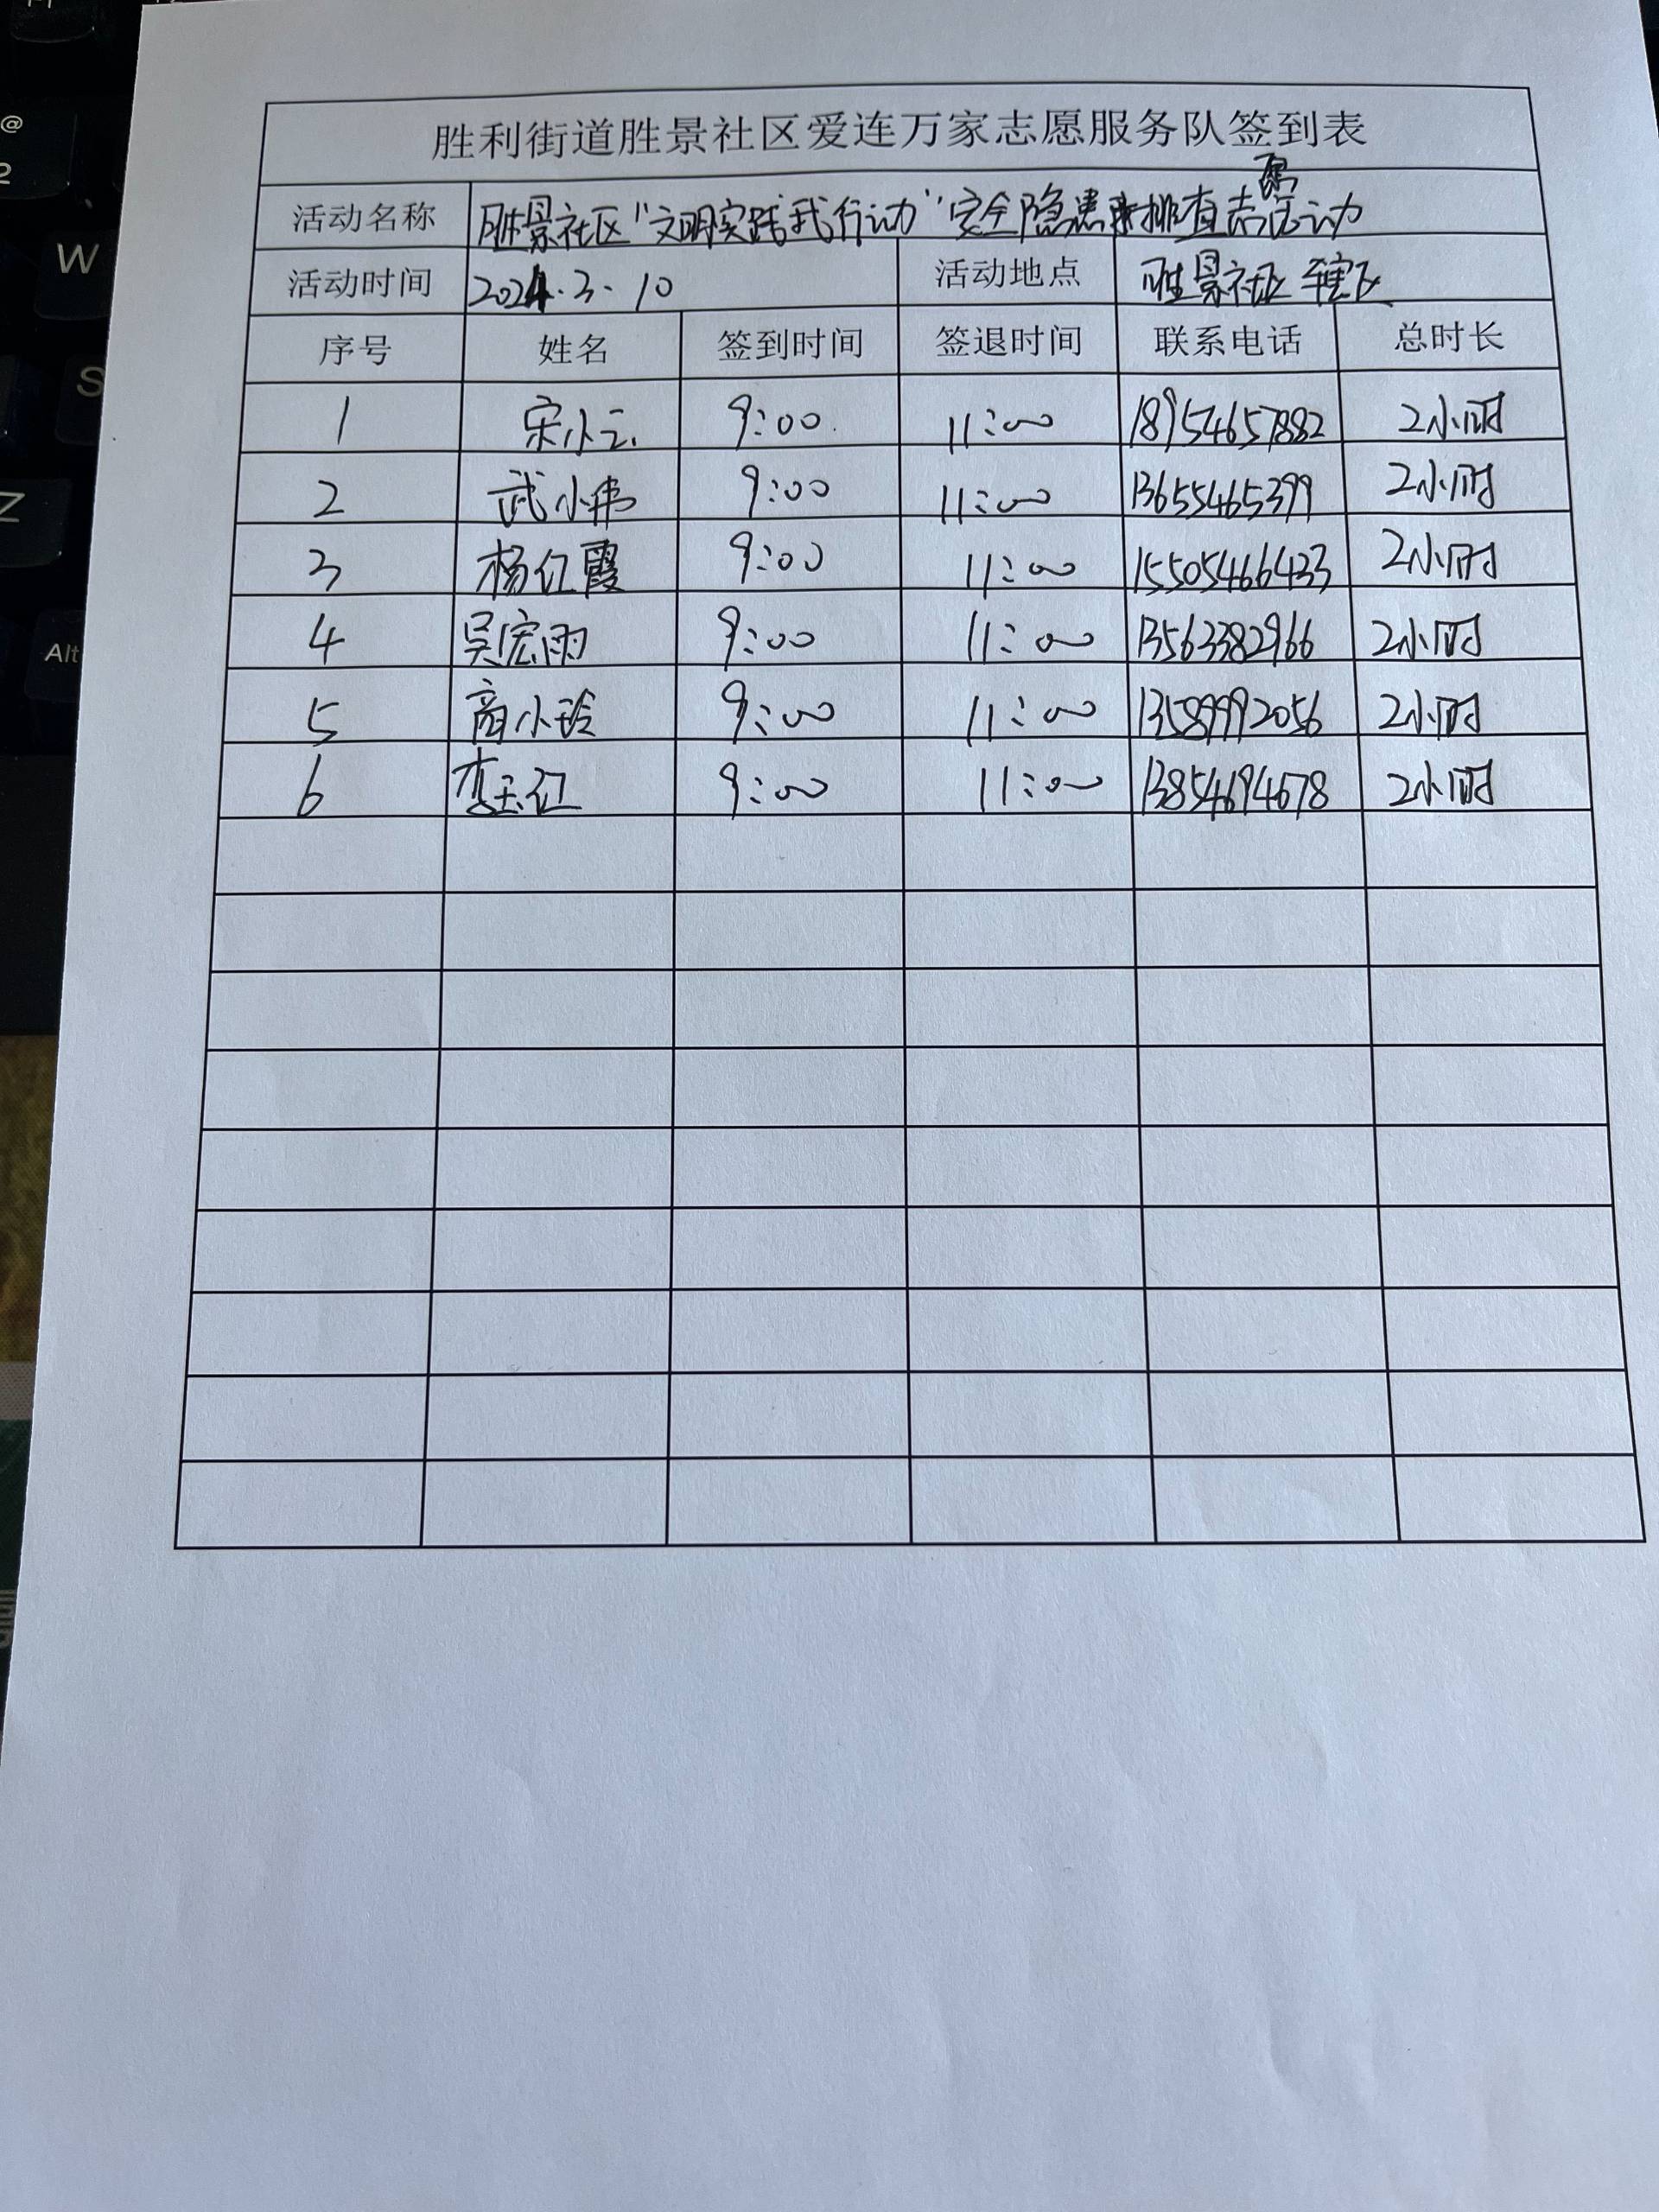 胜利街道胜景社区爱连万家志愿服务队签到表
活动名称 胜景社区"文明实践我行动"安全隐患排查志愿活动
活动时间 2024.3.10 活动地点 胜景社区辖区
序号 姓名 签到时间 签退时间 联系电话 总时长
1 宋小云 9:00 11:00 18954657882 2小时
2 武小伟 9:00 11:00 13655465399 2小时
3 杨红霞 9:00 11:00 15505466433 2小时
4 吴宏雨 9:00 11:00 13563382966 2小时
5 商小玲 9:00 11:00 13589992056 2小时
6 李玉红 9:00 11:00 13854694678 2小时
@
2
W
S
Z
Alt